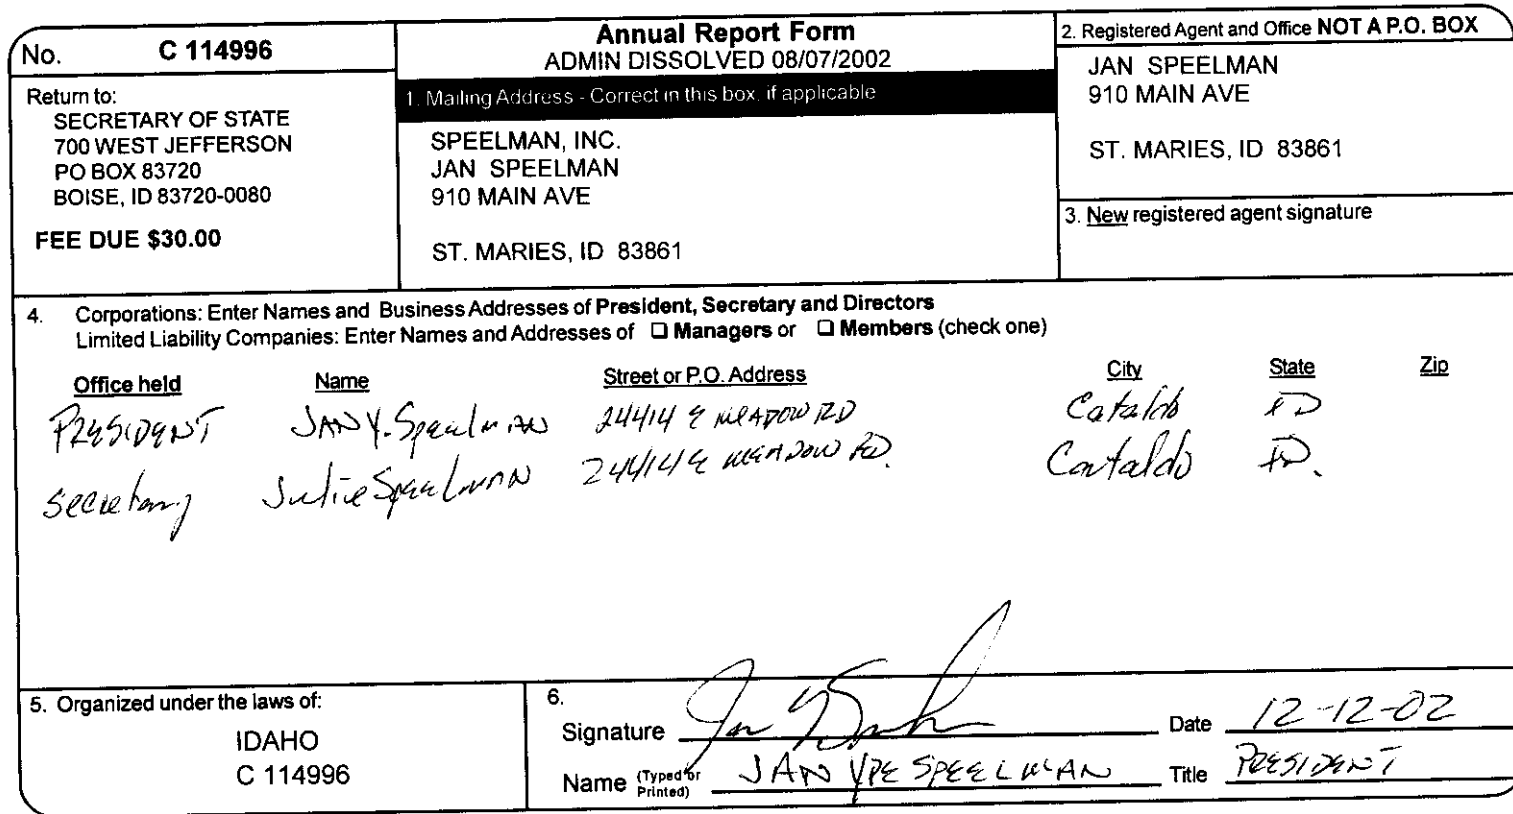 No. C 114996
Return to:
SECRETARY OF STATE
700 WEST JEFFERSON
PO BOX 83720
BOISE, ID 83720-0080
FEE DUE $30.00
Annual Report Form
ADMIN DISSOLVED 08/07/2002
1. Mailing Address - Correct in this box, if applicable
SPEELMAN, INC.
JAN SPEELMAN
910 MAIN AVE
ST. MARIES, ID 83861
2. Registered Agent and Office NOT A P.O. BOX
JAN SPEELMAN
910 MAIN AVE
ST. MARIES, ID 83861
3. New registered agent signature
4. Corporations: Enter Names and Business Addresses of President, Secretary and Directors
Limited Liability Companies: Enter Names and Addresses of ❑ Managers or ❑ Members (check one)
Office held Name Street or P.O. Address City State Zip
PRESIDENT JAN Y. Speelman 24414 E MEADOW RD Cataldo ID
Secretary Julie Speelman 24414 E MEADOW RD. Cataldo ID.
5. Organized under the laws of:
IDAHO
C 114996
6.
Signature Date 12-12-02
Name (Typed or Printed) JAN YPE SPEELMAN Title PRESIDENT